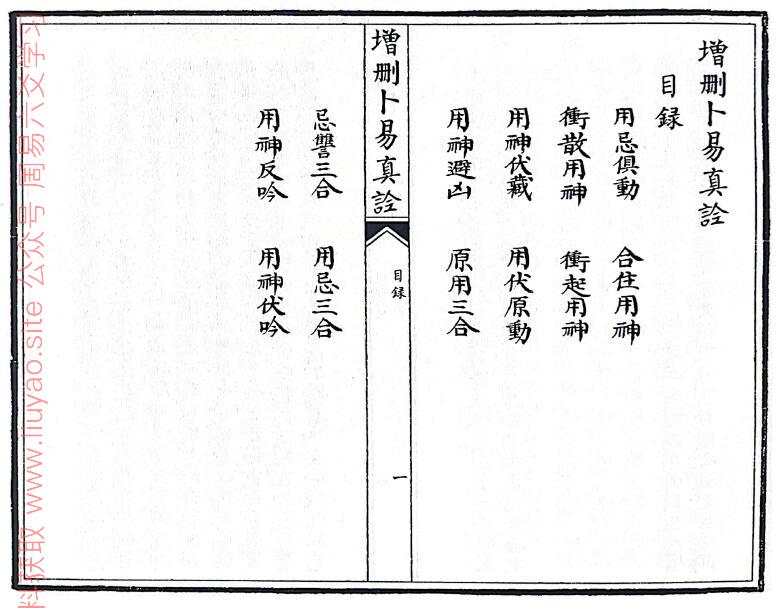 增刪卜易真詮
目録
用忌俱動 合住用神
衝散用神 衝起用神
用神伏藏 用伏原動
用神避凶 原用三合
增刪卜易真詮
目録
一
忌讐三合 用忌三合
用神反吟 用神伏吟
料获取 www.liuyao.site 公众号 周易六爻学习